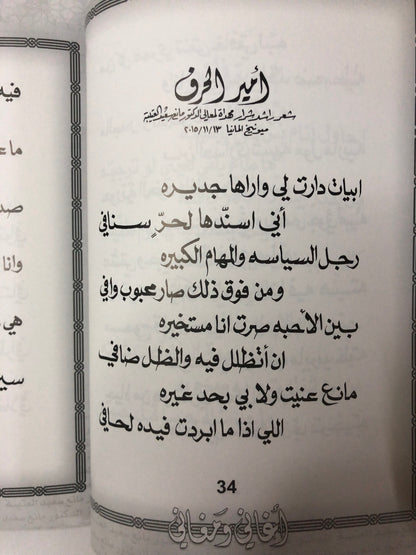 أمير الحرف
شعر راشد شرار مهداة لمعالي الدكتور مانع سعيد العتيبة
ميونيخ المانيا ٢٠١٥/١١/١٣
ابيات دارت لي واراها جديره
أني اسنّدها لحرٍ سنافي
رجل السياسه والمهام الكبيره
ومن فوق ذلك صار محبوب وافي
بين الأحبه صرت انا مستخيره
ان أتظلل فيه والظل ضافي
مانع عنيت ولا بي بحد غيره
اللي اذا ما ابردت فيده لحافي
34
أغاني ومغاني
فيه
ماء
صد
وانا
هي
سير